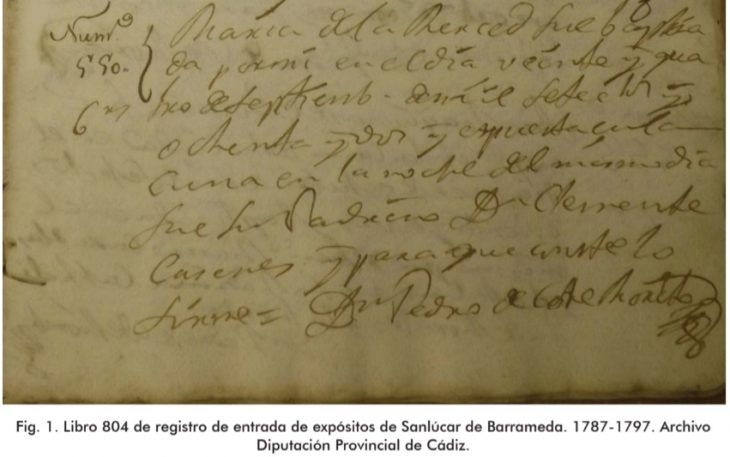 Num.º
550.
Maria de la Merced fue baptiza
da por mi en el dia veinte y qua
tro de septiemb. de mil setec.os y
ochenta y dos y expuesta en la
cuna en la noche del mismo dia
fue su Padrino Dn Clemente
y para que conste lo
firme = Dn Pedro de
Fig. 1. Libro 804 de registro de entrada de expósitos de Sanlúcar de Barrameda. 1787-1797. Archivo
Diputación Provincial de Cádiz.